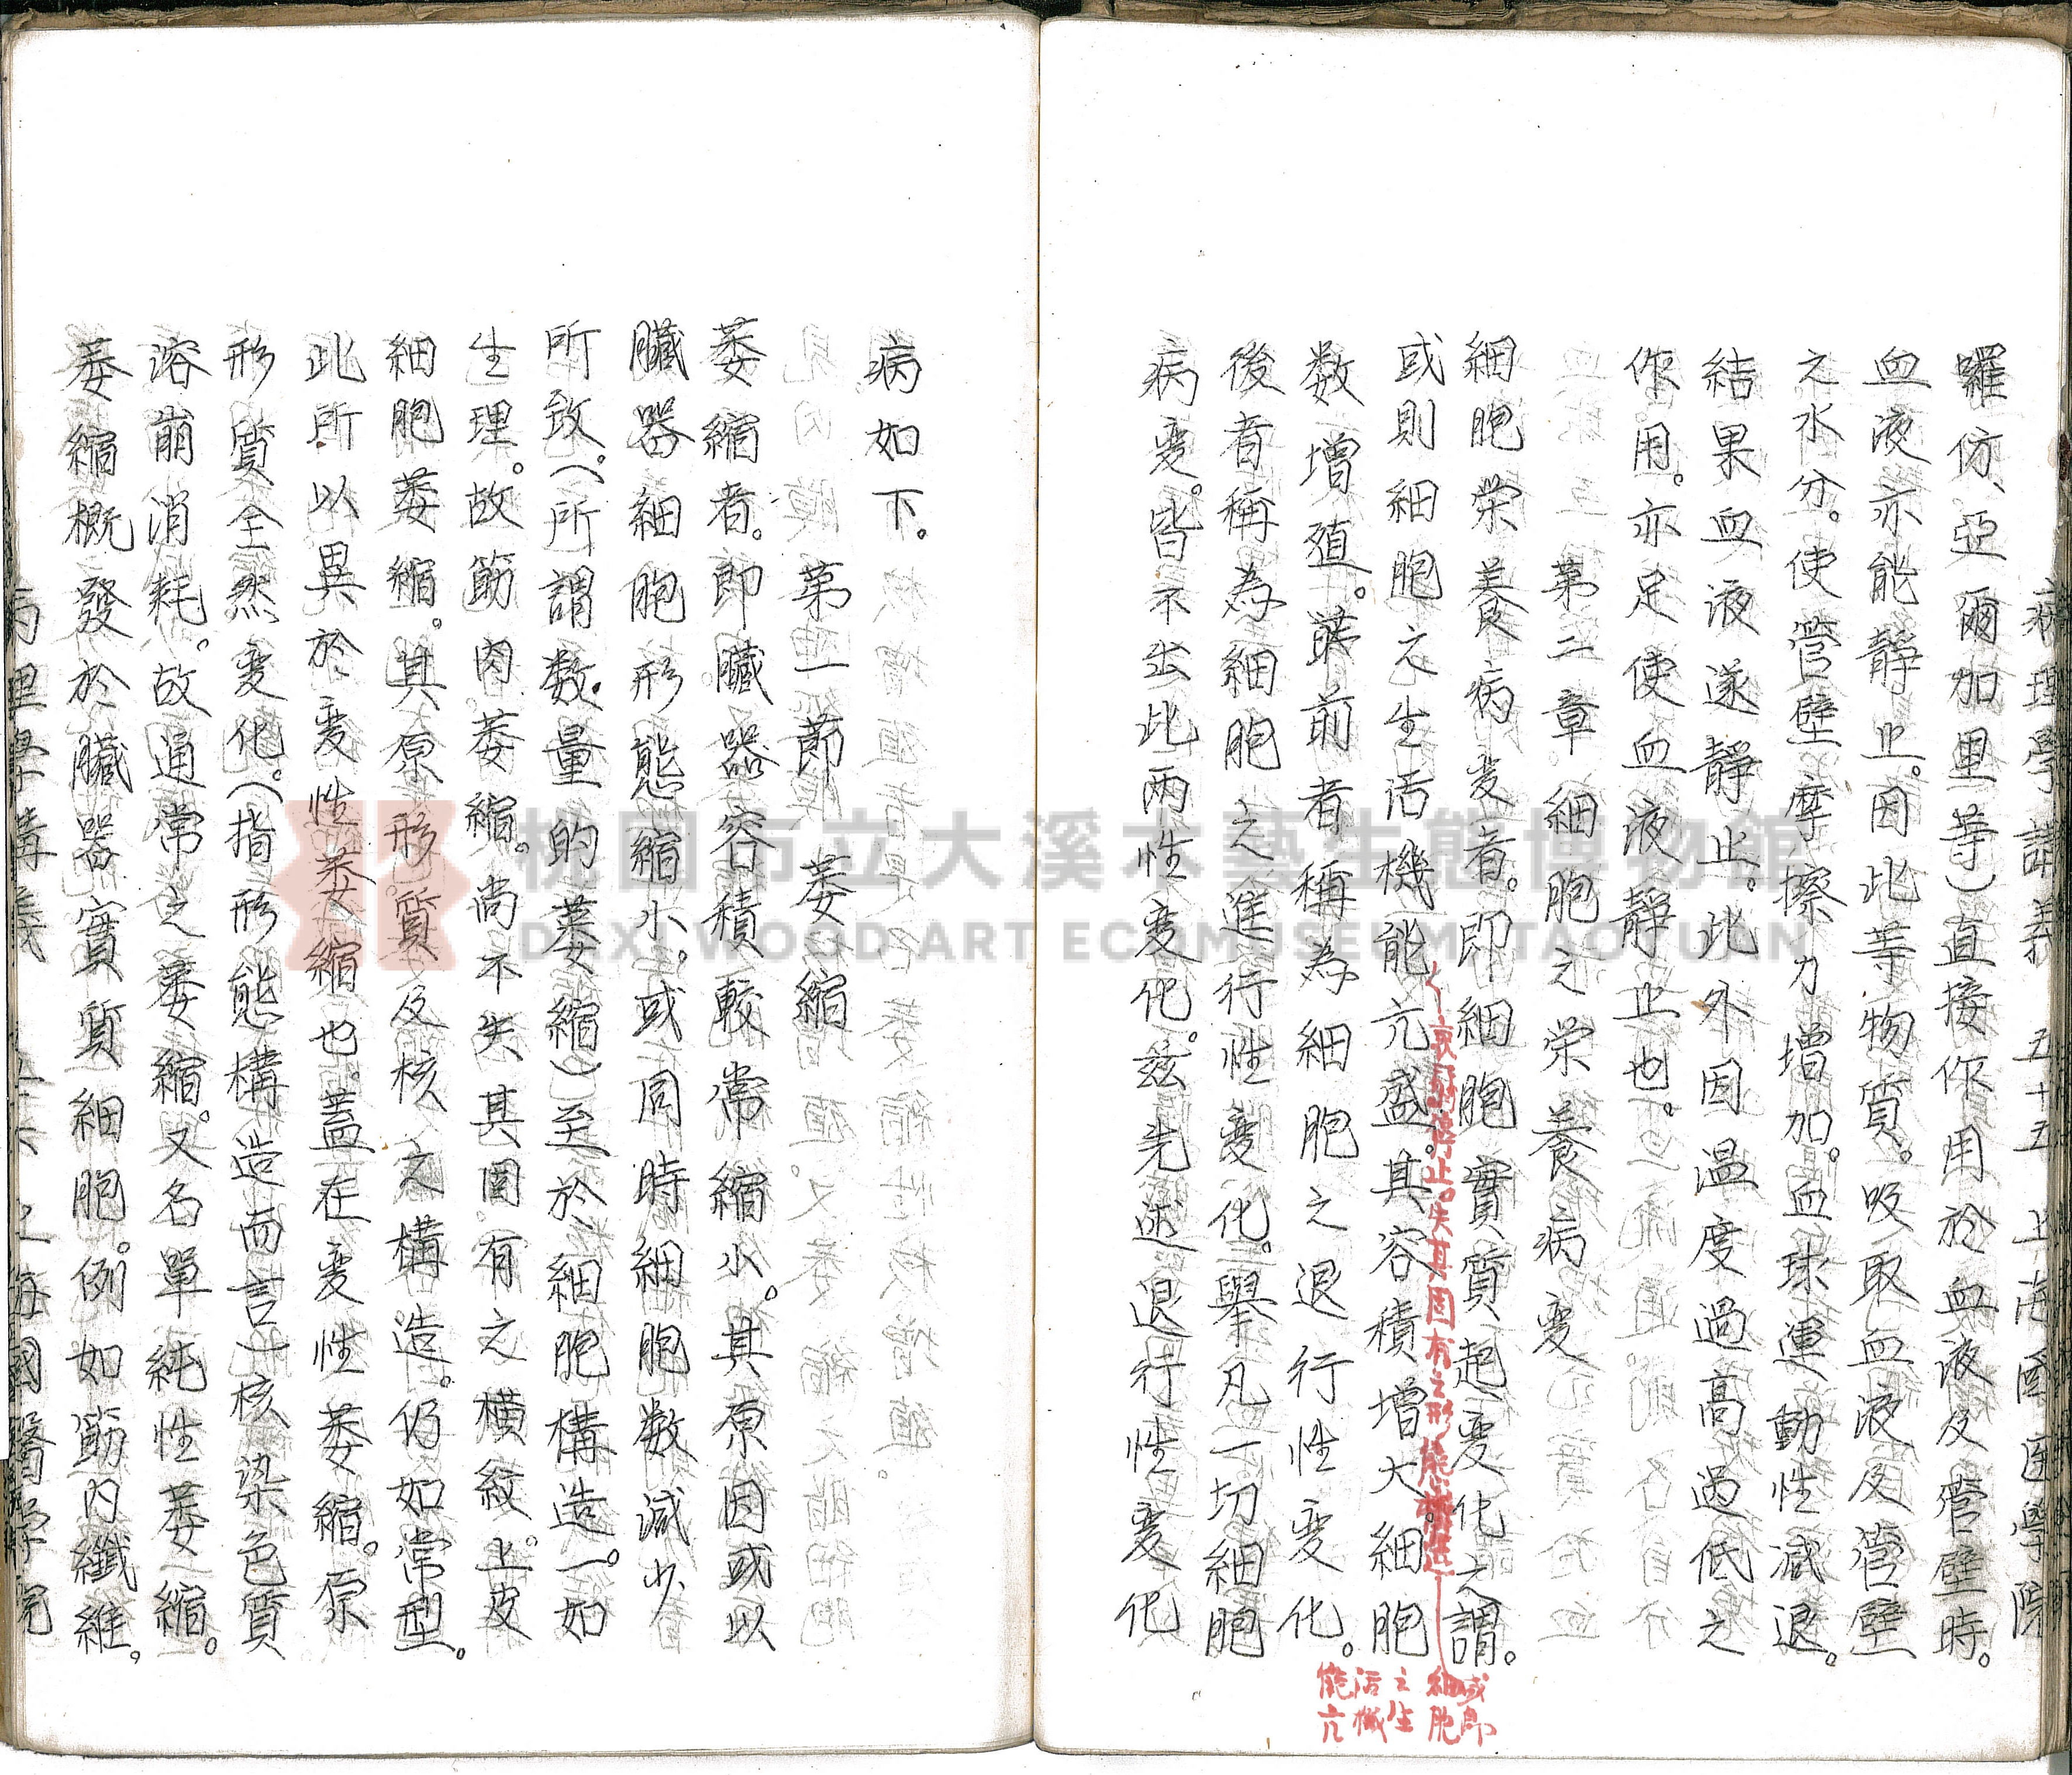 病理學講義 五十五 上海國医學院
囉仿、亞爾加里等)直接作用於血液及管壁時。
血液亦能靜止。因此等物質。吸取血液及管壁
之水分。使管壁摩擦力增加。血球運動性減退。
結果血液遂靜止。此外因温度過高過低之
作用。亦足使血液靜止也。
第二章 細胞之栄養病変
細胞栄養病変者。即細胞實質起変化之謂。
衰弱停止。失其固有之形能構造
或即細胞之生活機能亢
或則細胞之生活機能亢盛。其容積增大。細胞
数增殖。前者稱為細胞之退行性変化。
後者稱為細胞之進行性変化。舉凡一切細胞
病変。皆不出此兩性変化。兹先述退行性変化
病如下。
第一節 萎縮
萎縮者。即臟器容積較常縮小。其原因或以
臟器細胞形態縮小。或同時細胞数減少
所致。(所謂数量的萎縮)至於細胞構造。一如
生理。故筋肉萎縮。尚不失其固有之横紋。上皮
細胞萎縮。其原形質及核之構造。仍如常型。
此所以異於変性萎縮也。蓋在変性萎縮。原
形質全然変化。(指形態構造而言)核染色質
溶崩消耗。故通常之萎縮。又名單純性萎縮。
萎縮概發於臟器實質細胞。例如筋肉纖維。
病理學講義 五十六 上海國醫學院
桃園市立大溪木藝生態博物館
DAXI WOOD ART ECOMUSEUM, TAOYUAN